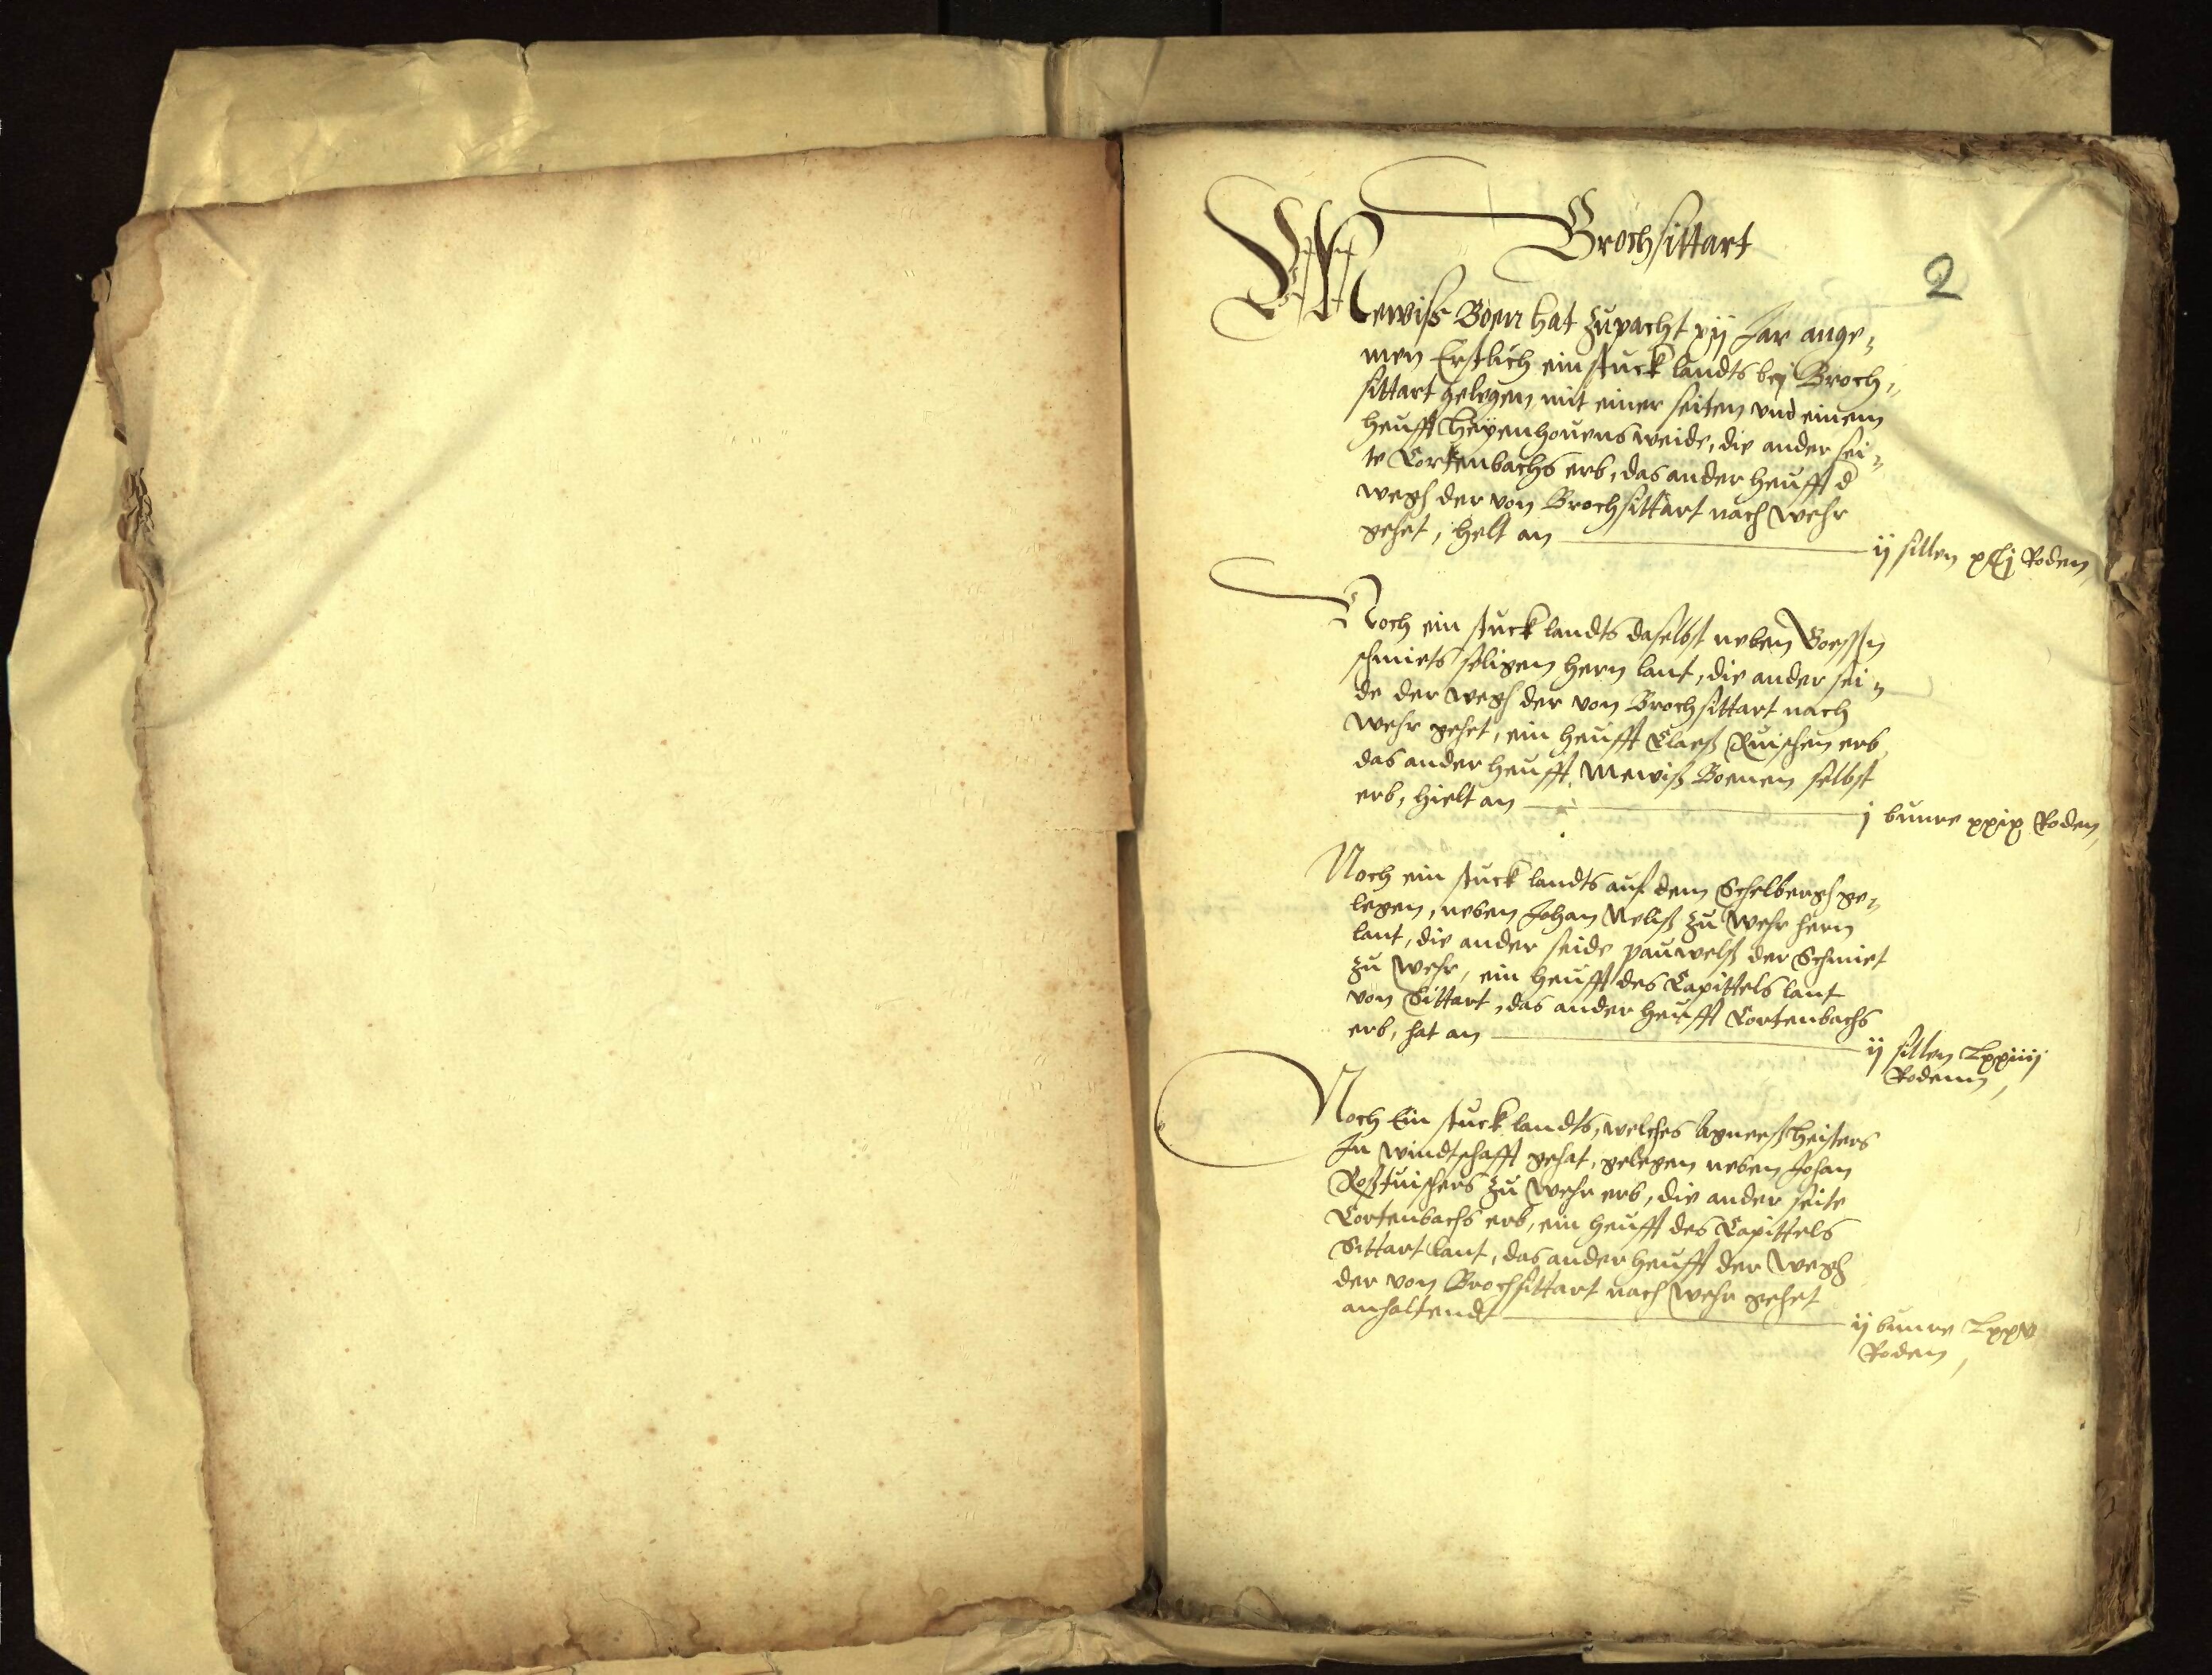 Brochsittart
2
Mewiß Boen hat zupacht xij Jar ange¬
men Erstlich ein stuck landts beÿ Broch¬
sittart gelegen mit einer seiten vnd einem
heufft Heÿenhouens weide, die ander sei¬
te Cortenbachs erb, das ander heufft d
wegh der von Brochsittart nach Wehr
gehet, helt an ij sillen Roden
Noch ein stuck landts daselbst neben
schmiets seligen hern lant, die ander sei¬
de der wegh der von Brochsittart nach
Wehr gehet, ein heufft Claeß Ruischen erb
das ander heufft Mewiß Boenen selbst
erb, hielt an j bunre xxix Roden
Noch ein stuck landts auf dem Schelbergh ge¬
legen, neben Johan Neliß zu Wehr hern
lant, die ander seide pauwelß der Schmiet
zu Wehr, ein heufft des Capittels lant
von Sittart, das ander heufft Cortenbachs
erb, hat an ij sillen Lxxiiij
Rodenn
Noch Ein stuck landts, welches Agneeß Heisters
In windtschafft gehat, gelegen neben Johan
Roßtuischers zu Wehr erb, die ander seite
Cortenbachs erb, ein heufft des Capittels
Sittart lant, das ander heufft der wegh
der von Brochsittart nach Wehr gehet
anhaltendt ij bunre Lxxv
Roden